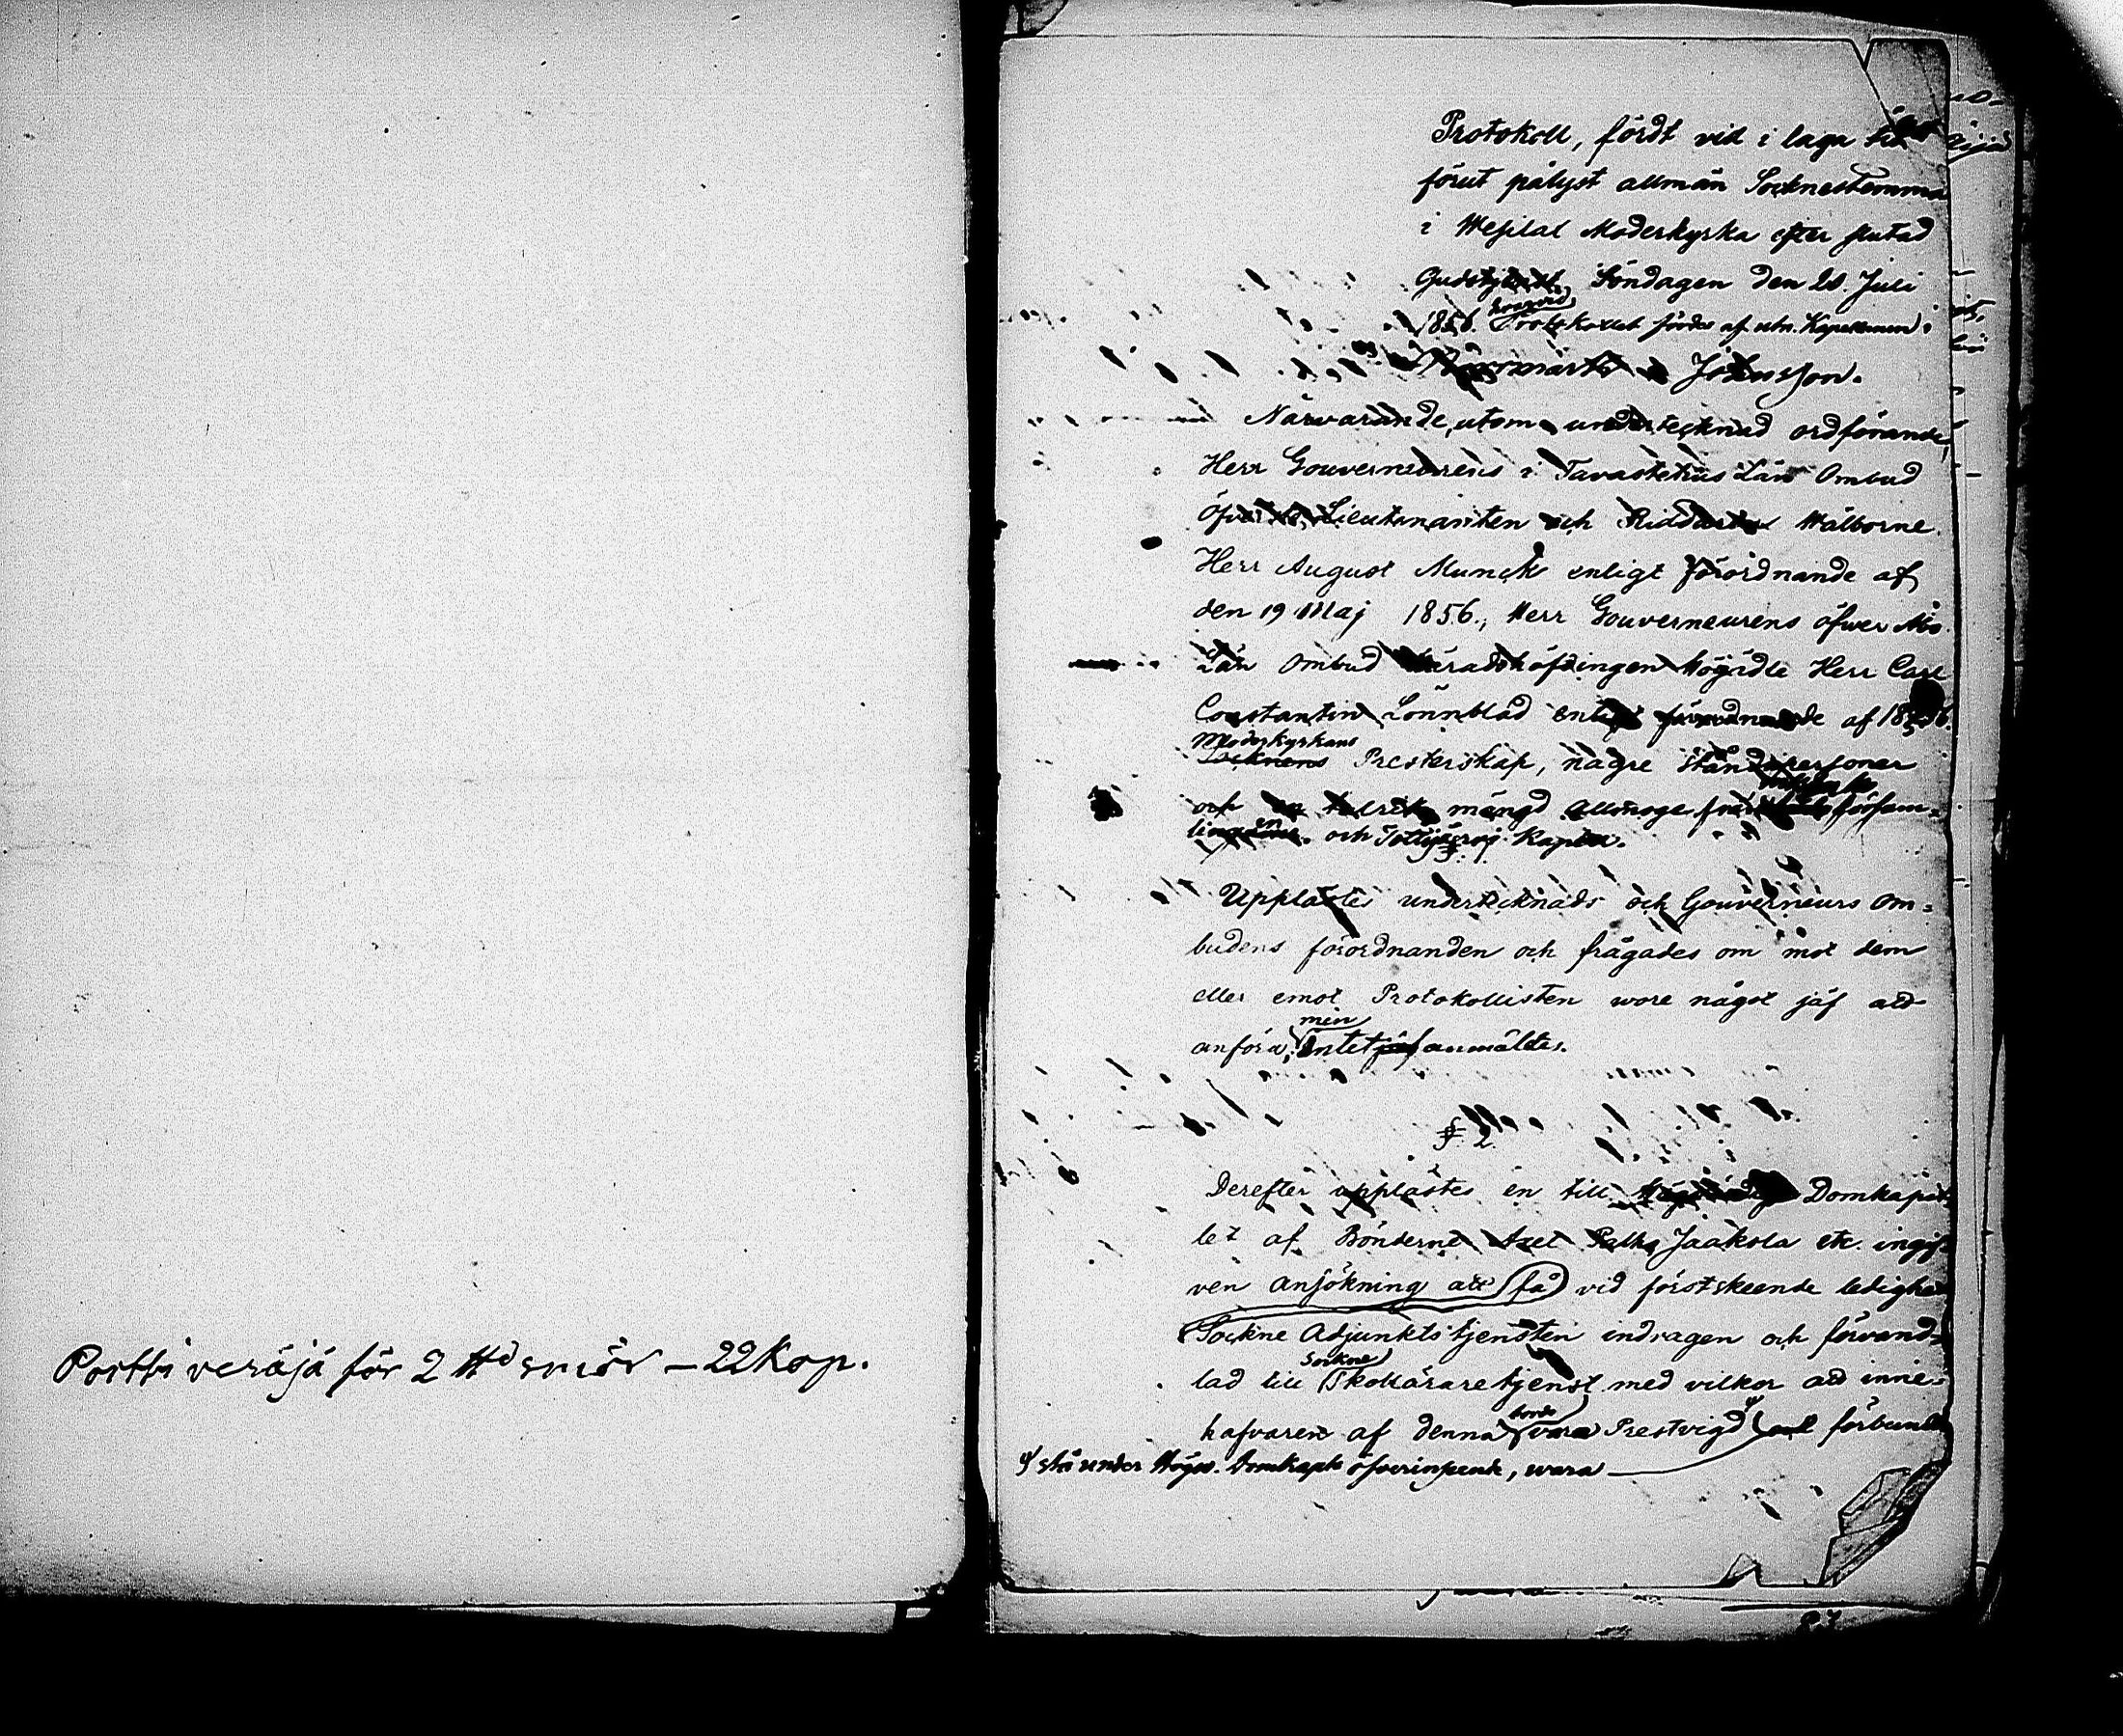 Portti veräjä för 2 ℔d smör – 22 Kop.
Protokoll, fördt vid i laga tid
förut pålyst allmän Socknestemma
i Wesilal Moderkyrka efter slutad
Gudstjenst Söndagen den 20. Juli
1856. hvarvid Protokollet fördes af utn. Kapellanen
Johnsson.
Närvarande, utom undertecknad ordförande,
Herr Gouverneurens i Tavastehus Län Ombud
öfverste Lieutenanten och Riddaren Wälborne
Herr August Munck enligt förordnande af
den 19 Maj 1856., Herr Gouverneurens öfwer Åbo
Län Ombud Häradshöfdingen Högädle Herr Carl
Constantin Lönnblad enligt förordnande af 1856.
Moderkyrkans
Socknens Presterskap, någre ståndspersoner
och en talrik mängd Allmoge från församlingen
och Tottijärvi Kapell.
Upplästes undertecknads och Gouverneurs Om=
budens förordnanden och frågades om mot dem
eller emot Protokollisten wore något jäf att
anföra; men intet jäf anmältes.
§ 2.
Derefter upplästes en till Domkapit
let af Bönderne Axel Jaakola etc. ingif=
ven ansökning att få vid förstskeende ledighet
Sockne Adjunktstjensten indragen och förvand=
lad till Sockne Skolläraretjenst med vilkor att inne=
hafvaren af denna borde vara Prestvigd och förbunden
stå under Högv. Domkapit. öfverinseende, wara